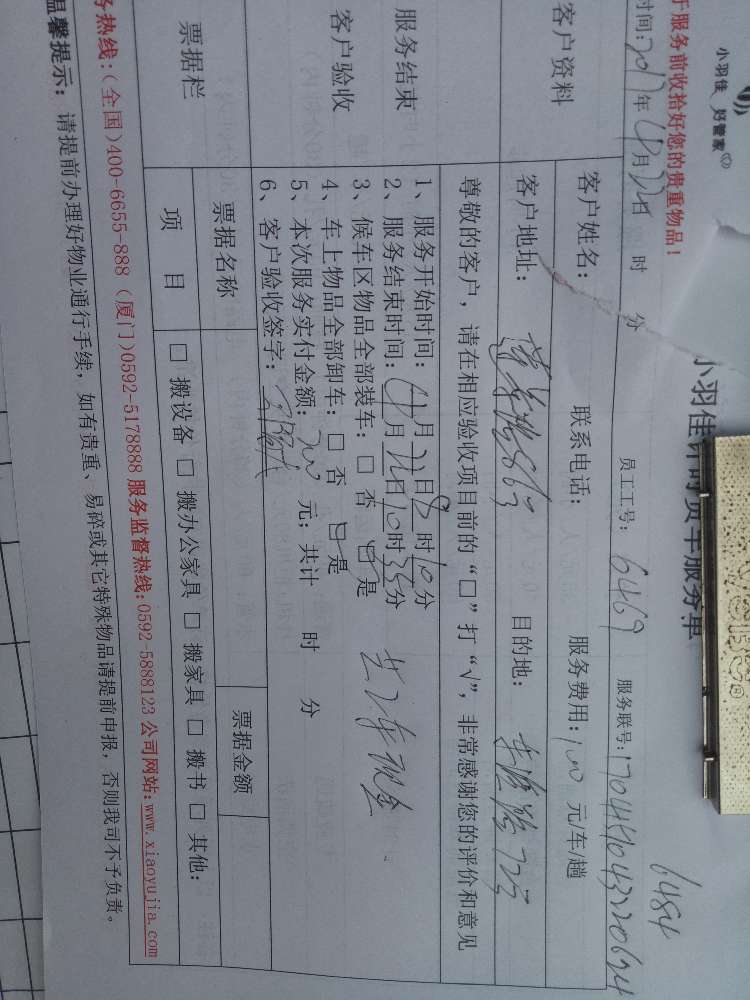 小羽佳 好管家
小羽佳计时货车服务单
于服务前收拾好您的贵重物品！
1484
时间：2017年4月22日 时 分
员工工号：6469
服务联号：
客户资料
客户姓名：
联系电话：
服务费用：100 元/车/趟
客户地址：
目的地：
尊敬的客户，请在相应验收项目前的“□”打“√”，非常感谢您的评价和意见
服务结束
客户验收
1、服务开始时间：4月22日8时10分
2、服务结束时间：4月22日10时35分
3、候车区物品全部装车：□ 否 □ 是
4、车上物品全部卸车：□ 否 □ 是
共7车现金
5、本次服务实付金额：700 元；共计 时 分
6、客户验收签字：
票据栏
票据名称
票据金额
项 目
□ 搬设备 □ 搬办公家具 □ 搬家具 □ 搬书 □ 其他：
务热线：(全国)400-6655-888 (厦门)0592-5178888 服务监督热线：0592-5888123 公司网站：www.xiaoyujia.com
温馨提示：请提前办理好物业通行手续，如有贵重、易碎或其它特殊物品请提前申报，否则我司不予负责。